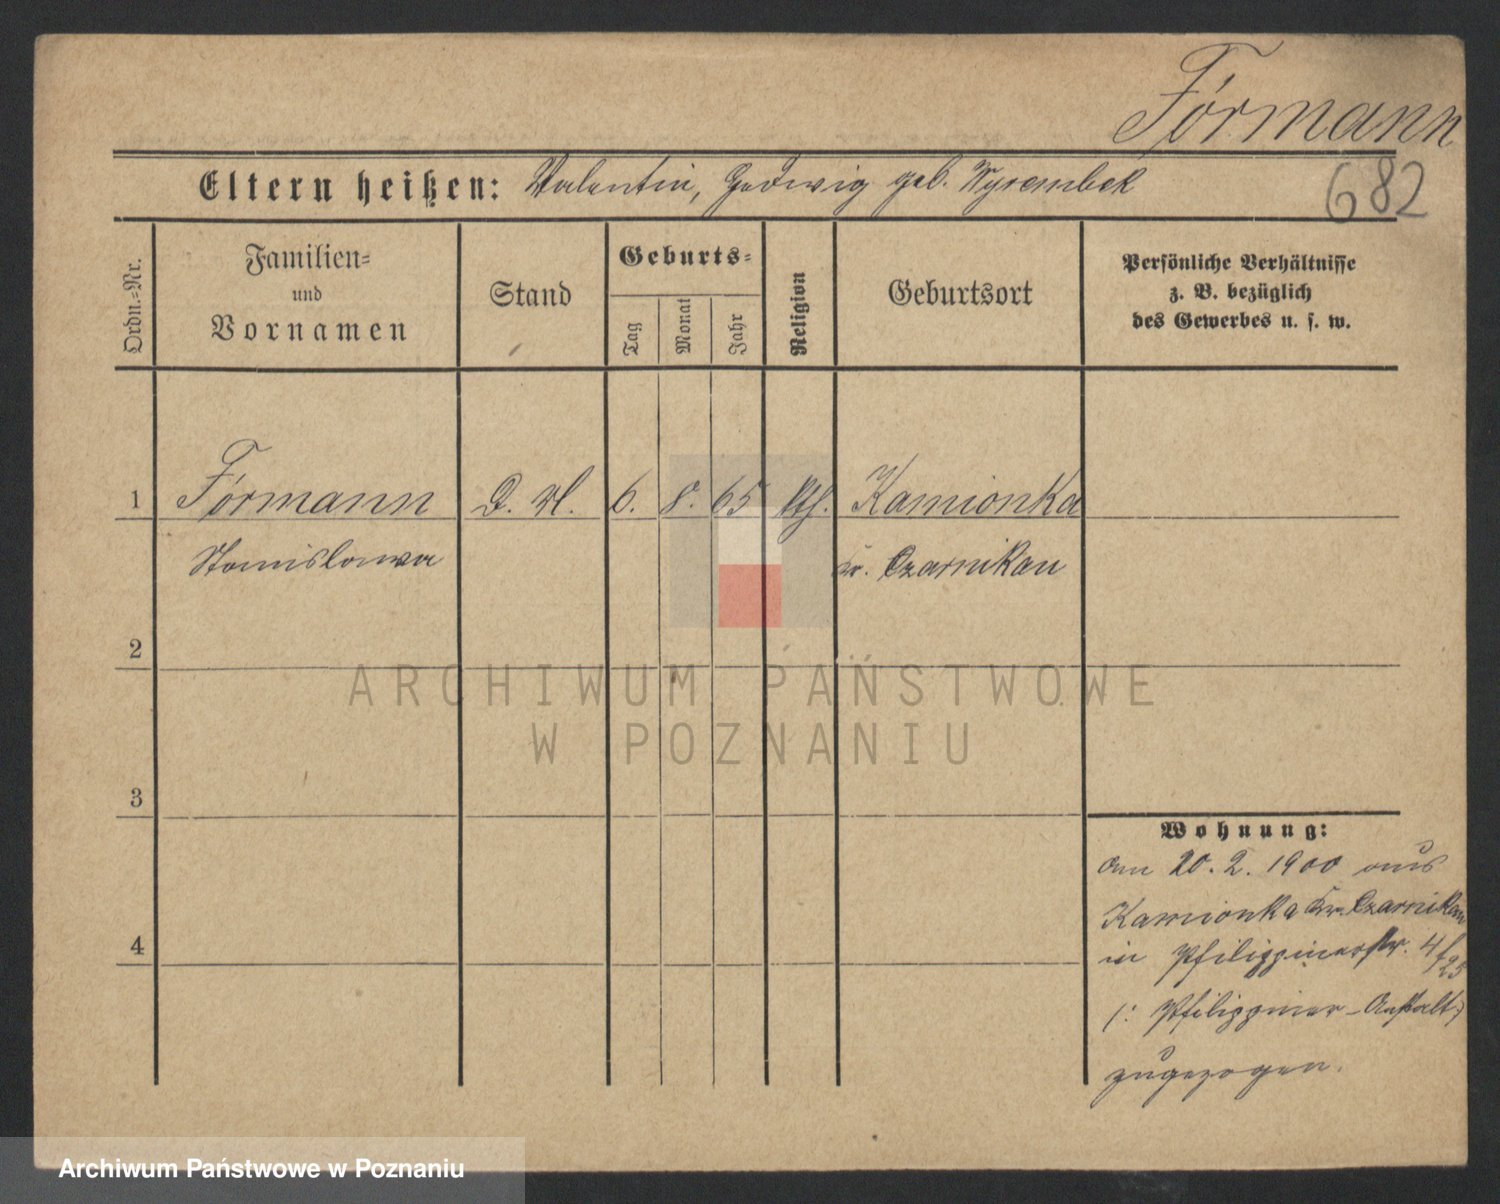 Förmann
Eltern heißen: Valentin, Hedwig geb. Wyrembek
682
Ordn.=Nr.
Familien=
und
Vornamen
Stand
Geburts=
Tag
Monat
Jahr
Religion
Geburtsort
Persönliche Verhältnisse
z. B. bezüglich
des Gewerbes u. s. w.
1 Förmann 6. 8. 65 kth. Kamionka
Stanislawa Kr. Czarnikau
2
ARCHIWUM PAŃSTWOWE
W POZNANIU
3
Wohnung:
am 20. 2. 1900 aus
Kamionka Kr. Czarnikau
4
in Philippinerstr. 4/25
(: Philippiner-Anstalt :)
zugezogen.
Archiwum Państwowe w Poznaniu